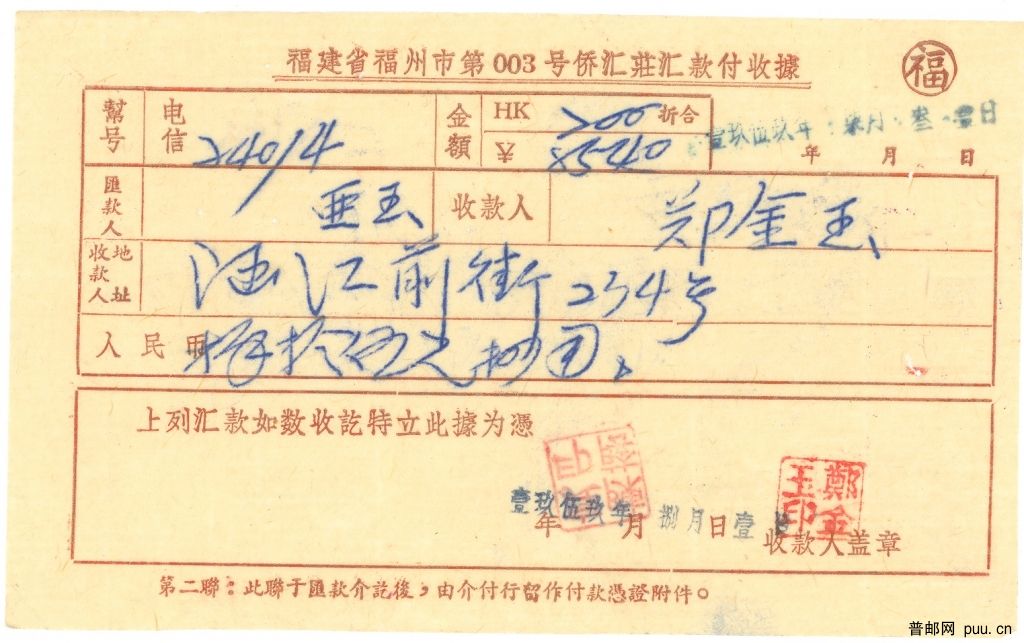 福建省福州市第003号侨汇莊汇款付收據
福
幫号 电信 24014 金額 HK 200 折合
¥ 8540
壹玖伍玖年 柒月 叁 壹日
年 月 日
匯款人 亜玉 收款人 郑金玉
收款人地址 涵江前街234号
人民币 捌拾伍元肆角
上列汇款如数收訖特立此據为憑
壹玖伍玖年 捌月 壹日
年 月 日
鄭金玉印
收款人盖章
第二聯：此聯于匯款介訖後，由介付行留作付款憑證附件。
普邮网 puu.cn